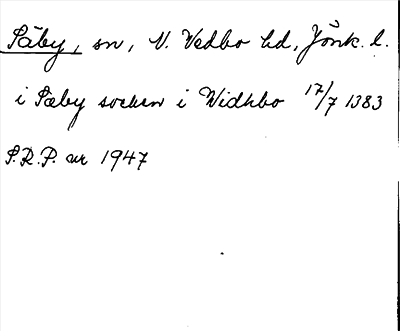 Säby, sn, V. Vedbo hd, Jönk. l.
i Sæby socken i Widhbo 17/7 1383
S.R.P. nr 1947